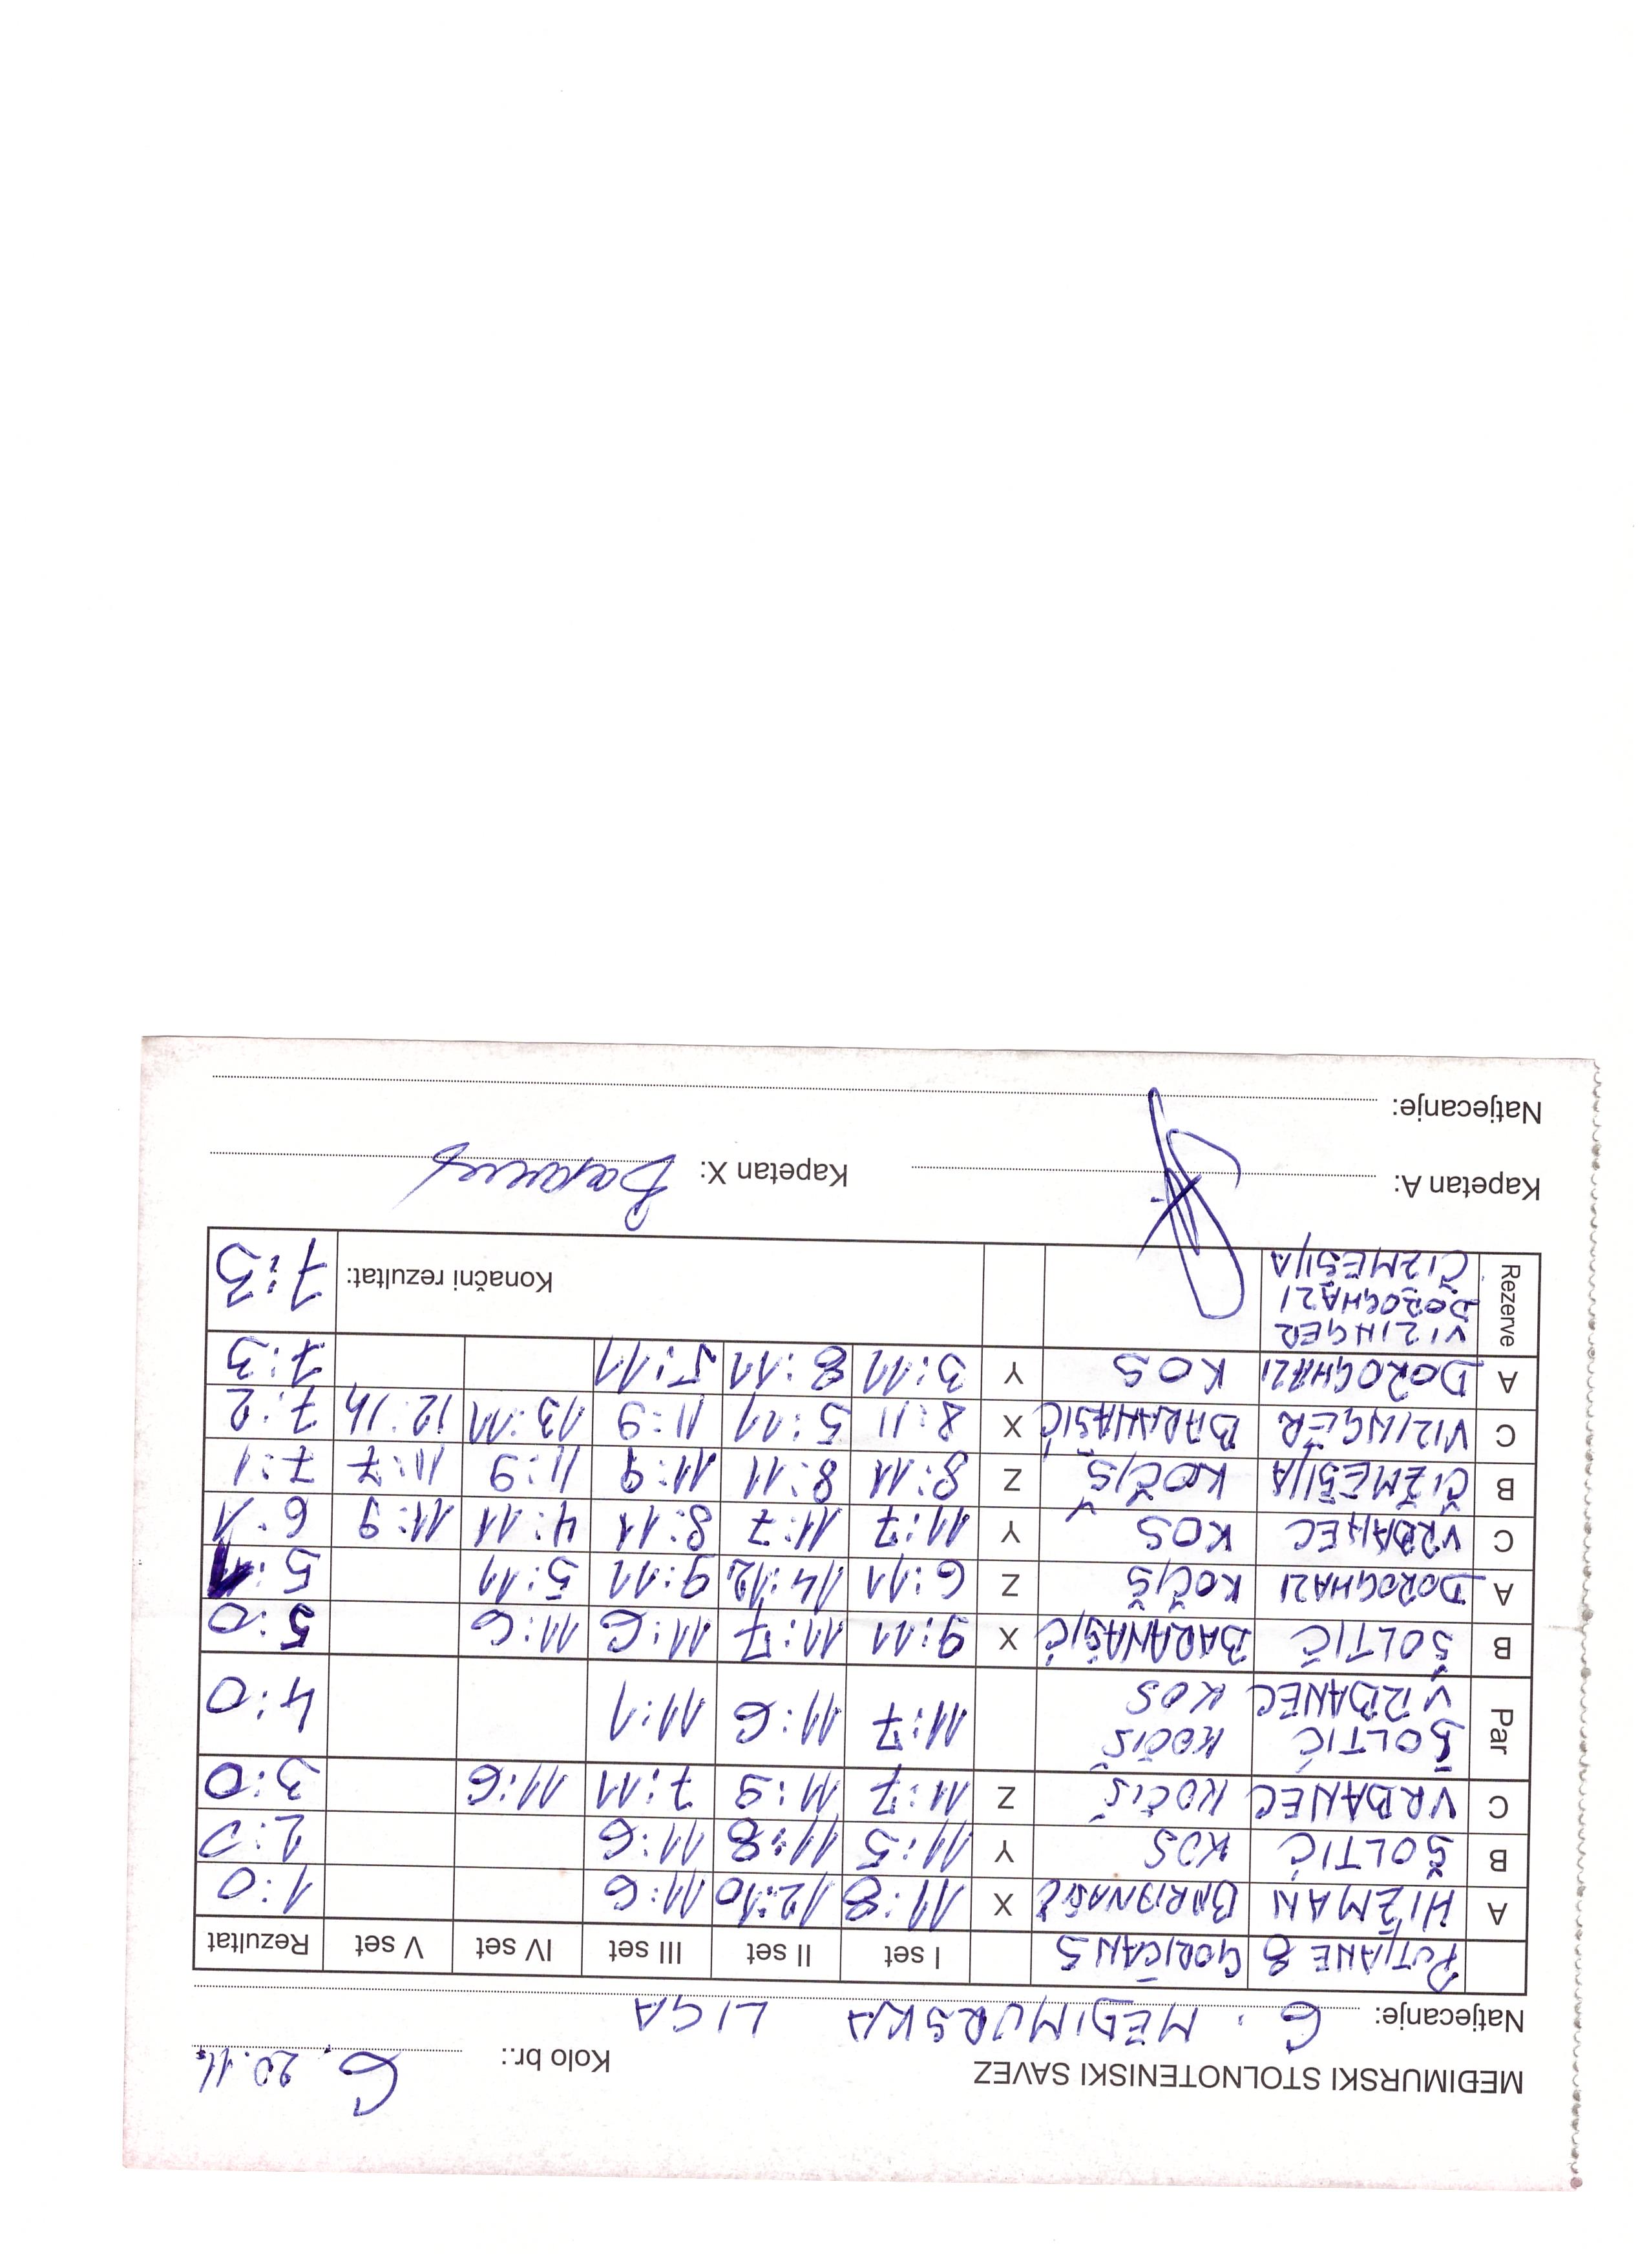 MEĐIMURSKI STOLNOTENISKI SAVEZ Kolo br.: 6. 20.11.
Natjecanje: 6. MEĐIMURSKA LIGA
PUTJANE 8 GORIČAN 5 I set II set III set IV set V set Rezultat
A HIŽMAN BARANAŠIĆ X 11:8 12:10 11:6 1:0
B ŠOLTIĆ KOS Y 11:5 11:8 11:6 2:0
C VRBANEC KOČIŠ Z 11:7 11:9 7:11 11:6 3:0
Par ŠOLTIĆ KOČIŠ 11:7 11:6 11:1 4:0
VRBANEC KOS
B ŠOLTIĆ BARANAŠIĆ X 9:11 11:7 11:6 11:6 5:0
A DOROGHAZI KOČIŠ Z 6:11 14:12 9:11 5:11 5:1
C VRBANEC KOS Y 11:7 11:7 8:11 4:11 11:9 6:1
B ČIŽMEŠIJA KOČIŠ Z 8:11 8:11 11:9 11:9 11:7 7:1
C VIZINGER BARANAŠIĆ X 8:11 5:11 11:9 13:11 12:14 7:2
A DOROGHAZI KOS Y 3:11 8:11 5:11 7:3
Rezerve VIZINGER Konačni rezultat: 7:3
DOROGHAZI
ČIZMEŠIJA
Kapetan A: Kapetan X:
Natjecanje: